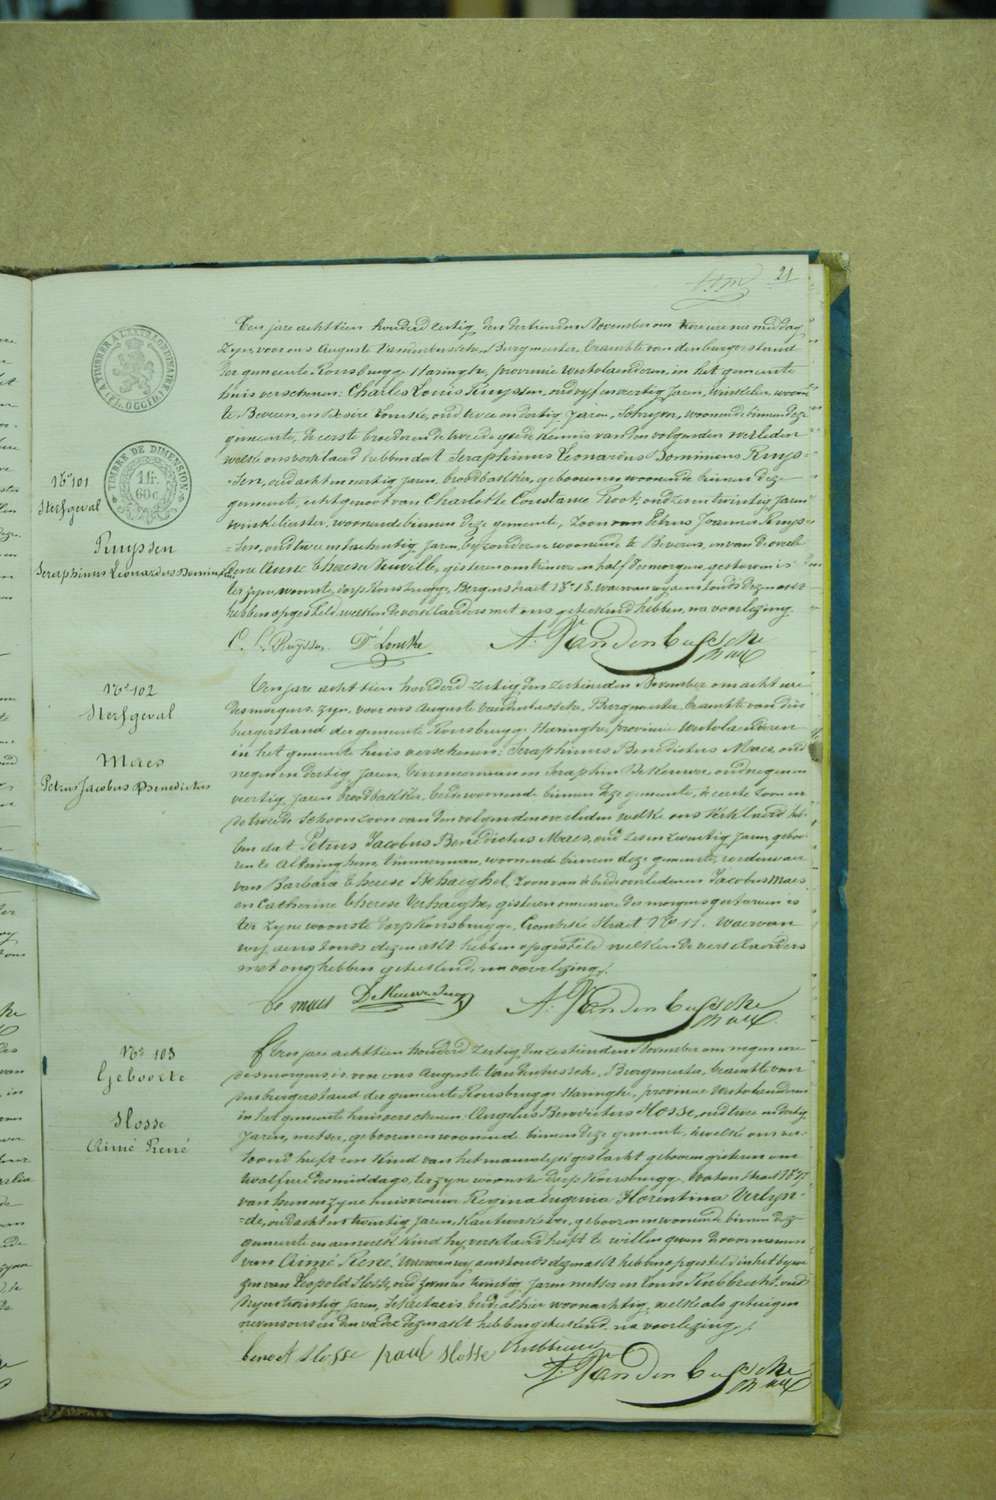 21
TIMBRE A L'EXTRAORDINAIRE
(FL. OCCID.)
TIMBRE DE DIMENSION
1 fr.
60 c.
N° 101
Sterfgeval
Ruyssen
Seraphinus Leonardus Dominicus
Ten jare achttien honderd zestig, den dertienden November om twee ure na middag
zyn, voor ons Auguste Vandenbussche, Burgmeester, beambte van den burgerstand
der gemeente Rousbrugge Haringhe, provincie Westvlaanderen, in het gemeente
huis verschenen: Charles Louis Ruyssen, oud vyf en veertig jaren, winkelier, woonende
te Beveren, en Désiré Lonckke, oud twee en dertig jaren, schryver, woonende binnen deze
gemeente, de eerste broeder en de tweede goede kennis van den volgenden overleden
welke ons verklaard hebben dat Seraphinus Leonardus Dominicus Ruys=
=sen, oud acht en veertig jaren, broodbakker, geboren en woonende binnen deze
gemeente, echtgenoot van Charlotte Constance Groot, oud zes en twintig jaren
winkelierster, woonende binnen deze gemeente, zoon van Petrus Joannes Ruys=
=sen, oud twee en tachentig jaren, byzondere, woonende te Beveren, en van de overle
dene Anne Therese Neuville, gisteren om een en half des morgens gestorven is
ter zyne woonste, dorp Rousbrugge, Bergenstraet N° 18, waervan wy aenstonds deze acte
hebben opgesteld, welken de verklaarders met ons geteekend hebben, na voorlezing.
C. L. Ruyssen D. Lonckke A. Vandenbussche
N° 102
Sterfgeval
Maes
Petrus Jacobus Benedictus
Ten jare achttien honderd zestig, den zestienden November om acht ure
des morgens, zyn, voor ons Auguste Vandenbussche, Burgmeester, beambte van den
burgerstand der gemeente Rousbrugge Haringhe, provincie Westvlaanderen
in het gemeente huis verschenen: Seraphinus Benedictus Maes, oud
negen en dertig jaren, timmerman en Seraphin De Keuwer, oud negen en
veertig jaren broodbakker, beide woonende binnen deze gemeente, de eerste zoon en
de tweede schoonzoon van den volgenden overleden welke ons verklaard heb=
ben dat Petrus Jacobus Bénédictus Maes, oud zes en zeventig jaren, geboo=
ren te Alveringhem, timmerman, woonende binnen deze gemeente, weduwaer
van Barbara Therese Behaeghel, zoon van de beide overledenen Jacobus Maes
en Catherine Therese Verhaeghe, gisteren om een ure des morgens gestorven is
ter zyne woonste dorp Rousbrugge, Crombeke straet N° 11. Waervan
wy aenstonds deze acte hebben opgesteld welken de verklaarders
met ons hebben geteekend, na voorlezing.
be maes DeKeuwer A. Vandenbussche
N° 103
Geboorte
Hosse
Aimé René
Ten jare achttien honderd zestig, den zestienden November om negen ure
des morgens is voor ons Auguste Vandenbussche, Burgmeester, beambte van
den burgerstand der gemeente Rousbrugge Haringhe, provincie Westvlaanderen
in het gemeente huis verschenen Angelus Benedictus Hosse, oud twee en dertig
jaren, metser, geboren en woonende binnen deze gemeente, dewelke ons ver=
toond heeft een kind van het mannelyk geslacht geboren gisteren om
twalf ure des middags, ter zyne woonste dorp Rousbrugge,
van hem en zyne huisvrouwe Regina Eugenia Florentina Verlyn=
=de, oud acht en twintig jaren, kantwerkster, geboren en woonende binnen deze
gemeente en aan welk kind hy verklaard heeft te willen geven de voornamen
van Aimé René, waervan wy aenstonds deze acte hebben opgesteld in het bywe
zen van Leopold Hosse, oud zes en twintig jaren metser en Louis Rubbrecht, oud
twintig jaren, secretaris, beide alhier woonachtig, welke als getuigen
nevens ons en den vader deze acte hebben geteekend, na voorlezing.
benoot Hosse paul Hosse Rubbrecht
A. Vandenbussche